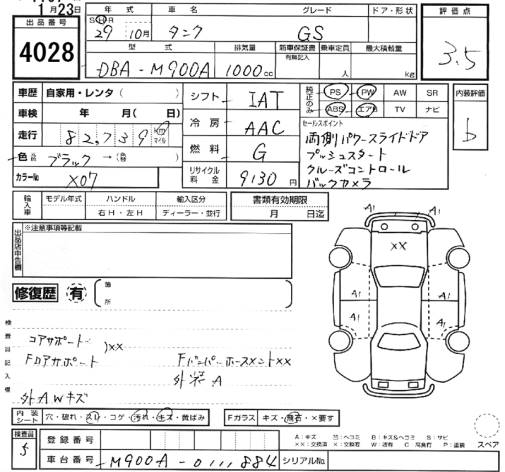 1月23日
出品番号
4028
年式
SHR
29 10月
タンク
グレード
GS
ドア・形状
評価点
3.5
型式
DBA-M900A
排気量
1000cc
新車保証書
有無記入
乗車定員
人
最大積載量
kg
車歴 自家用・レンタ( )
車検 年 月( 日)
走行 82,739 km マイル
色 ブラック →( )
カラーNo X07
シフト IAT
冷房 AAC
燃料 G
リサイクル料金 9130円
純正のみ
PS PW AW SR
ABS エアB TV ナビ
内装評価
D
セールスポイント
両側パワースライドドア
プッシュスタート
クルーズコントロール
バックカメラ
輸入車
モデル年式
ハンドル
右H・左H
輸入区分
ディーラー・並行
書類有効期限
月 日迄
出品店申告欄
※注意事項等記載
修復歴 有
箇所
検査員記入欄
コアサポート )xx
Fロアサポート
FバンパーホースメントXX
外キズA
外AWキズ
A1
A1
XX
A1
A1
A1
A1
内装シート
穴・破れ・スレ・コゲ・汚れ・キズ・黄ばみ
Fガラス
キズ・飛石・×要す
検査員
5
登録番号
車台番号 M900A-0111884
シリアルNo.
A:キズ
B:キズ&ヘコミ
S:サビ
P:塗装
スペア